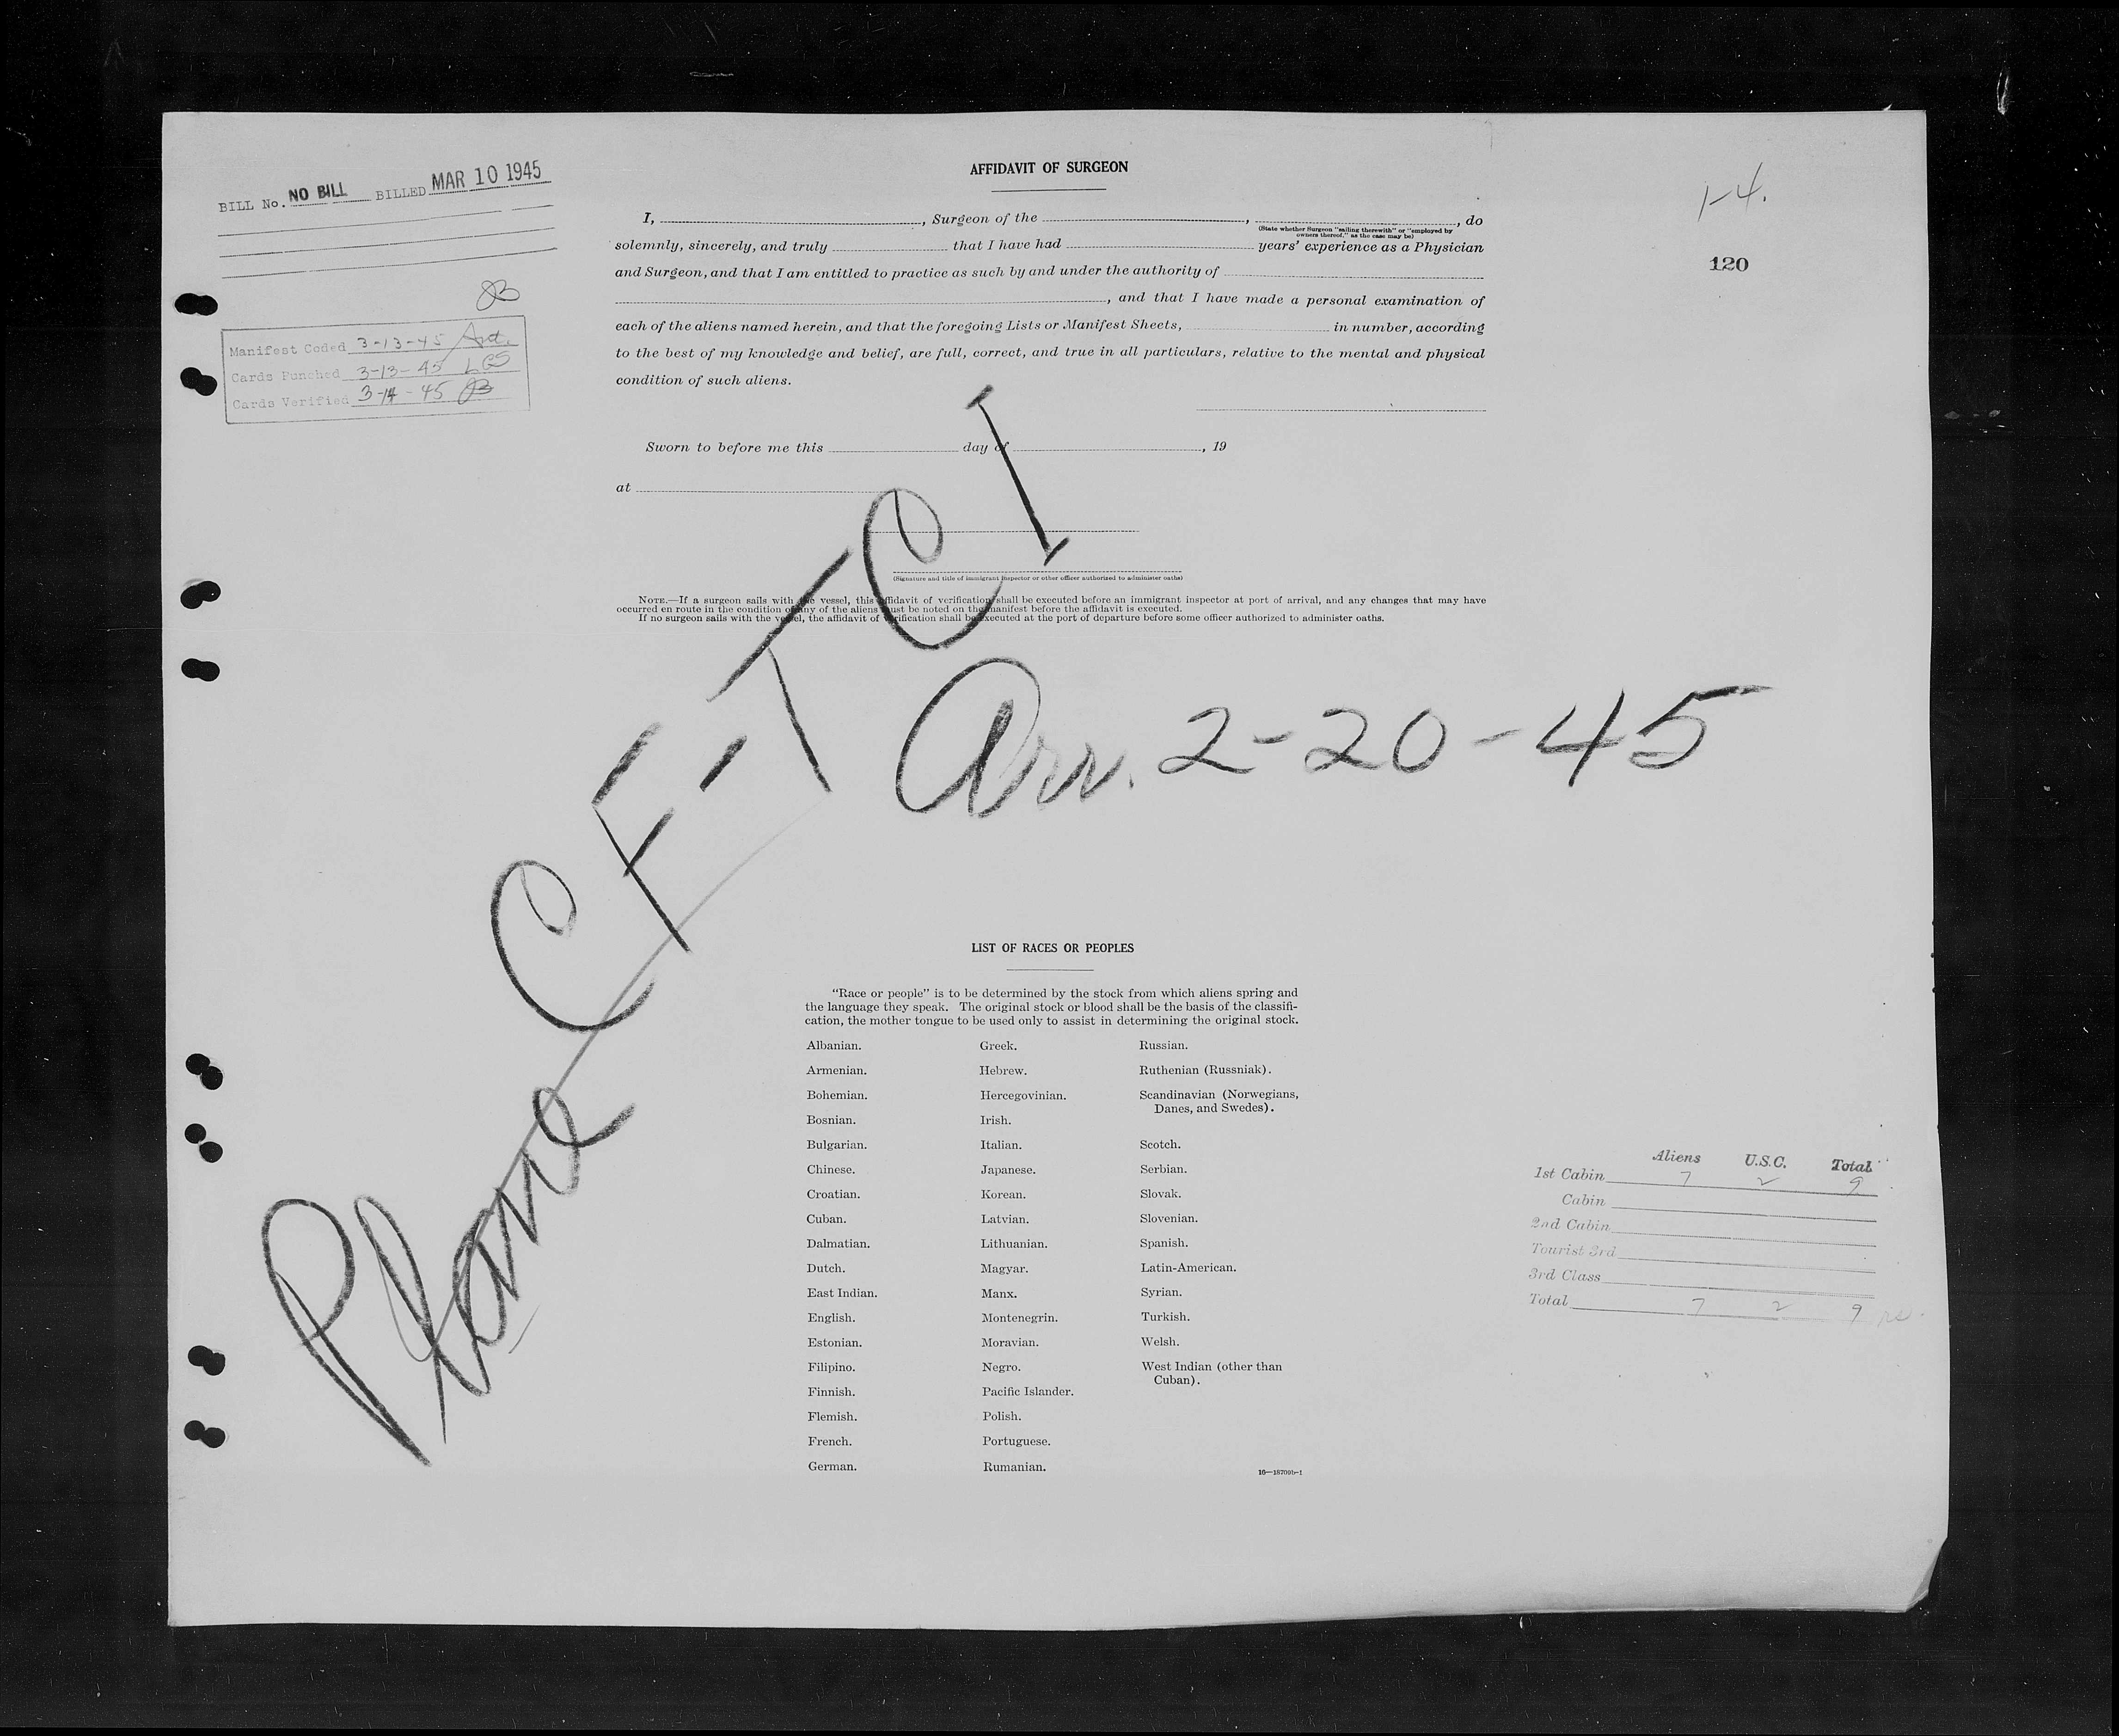 BILL No. NO BILL BILLED MAR 10 1945
JB
Manifest Coded 3-13-45
Cards Punched 3-13-45 LGS
Cards Verified 3-14-45 JB
1-4.
120
AFFIDAVIT OF SURGEON
I, , Surgeon of the , , do
(State whether Surgeon "sailing therewith" or "employed by
owners thereof," as the case may be)
solemnly, sincerely, and truly that I have had years' experience as a Physician
and Surgeon, and that I am entitled to practice as such by and under the authority of
, and that I have made a personal examination of
each of the aliens named herein, and that the foregoing Lists or Manifest Sheets, in number, according
to the best of my knowledge and belief, are full, correct, and true in all particulars, relative to the mental and physical
condition of such aliens.
Sworn to before me this day of , 19
at
(Signature and title of immigrant inspector or other officer authorized to administer oaths)
NOTE.—If a surgeon sails with the vessel, this affidavit of verification shall be executed before an immigrant inspector at port of arrival, and any changes that may have
occurred en route in the condition of any of the aliens must be noted on the manifest before the affidavit is executed.
If no surgeon sails with the vessel, the affidavit of verification shall be executed at the port of departure before some officer authorized to administer oaths.
Plane CF-TCI
Arr. 2-20-45
LIST OF RACES OR PEOPLES
"Race or people" is to be determined by the stock from which aliens spring and
the language they speak. The original stock or blood shall be the basis of the classifi-
cation, the mother tongue to be used only to assist in determining the original stock.
Albanian.
Armenian.
Bohemian.
Bosnian.
Bulgarian.
Chinese.
Croatian.
Cuban.
Dalmatian.
Dutch.
East Indian.
English.
Estonian.
Filipino.
Finnish.
Flemish.
French.
German.
Greek.
Hebrew.
Hercegovinian.
Irish.
Italian.
Japanese.
Korean.
Latvian.
Lithuanian.
Magyar.
Manx.
Montenegrin.
Moravian.
Negro.
Pacific Islander.
Polish.
Portuguese.
Rumanian.
Russian.
Ruthenian (Russniak).
Scandinavian (Norwegians,
Danes, and Swedes).
Scotch.
Serbian.
Slovak.
Slovenian.
Spanish.
Latin-American.
Syrian.
Turkish.
Welsh.
West Indian (other than
Cuban).
16—18709b-1
Aliens U.S.C. Total
1st Cabin 7 2 9
Cabin
2nd Cabin
Tourist 3rd
3rd Class
Total 7 2 9